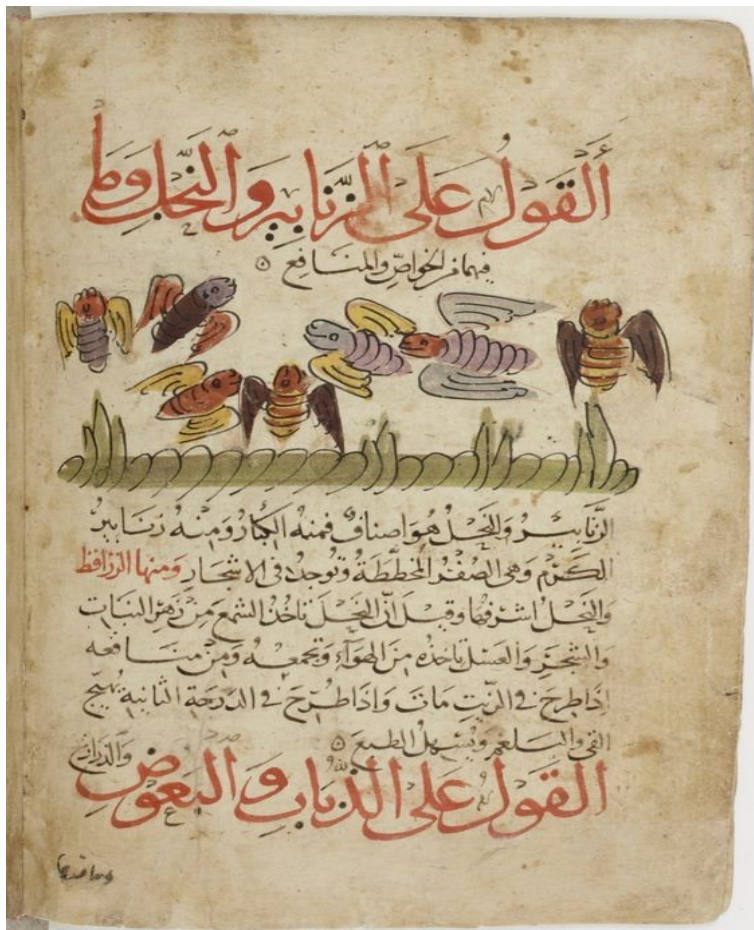 القول على الزنابير والنحل وما
فيهما من الخواص والمنافع
الزنابير والنحل هو اصناف فمنه الكبار ومنه زنابير
الكرم وهى الصفر المخططة وتوجد فى الاشجار ومنها
والنحل اشرفها وقيل ان النحل تاخذ الشمع من زهر النبات
والشجر والعسل تاخذه من الهوآء وتجمعه ومن منافعه
اذا طرح فى الزيت مات واذا طرح فى الدرجة الثانية يهيج
القى والبلغم ويسهل الطبع
القول على الذباب والبعوض